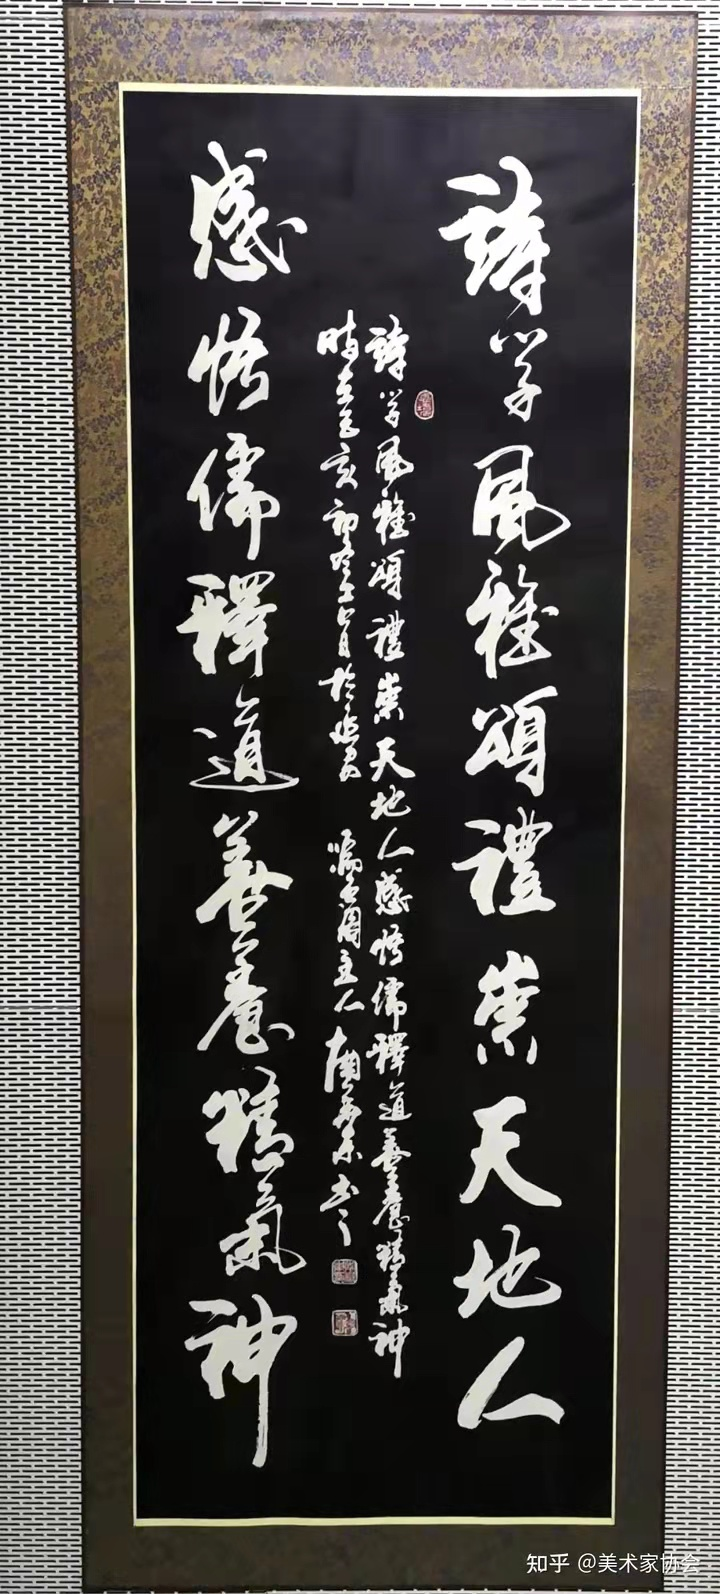 詩學風雅頌禮崇天地人
詩學風雅頌禮崇天地人感悟儒釋道善養精氣神
時在己亥初冬吉月於北京 主人 書
感悟儒釋道善養精氣神
知乎 @美术家协会